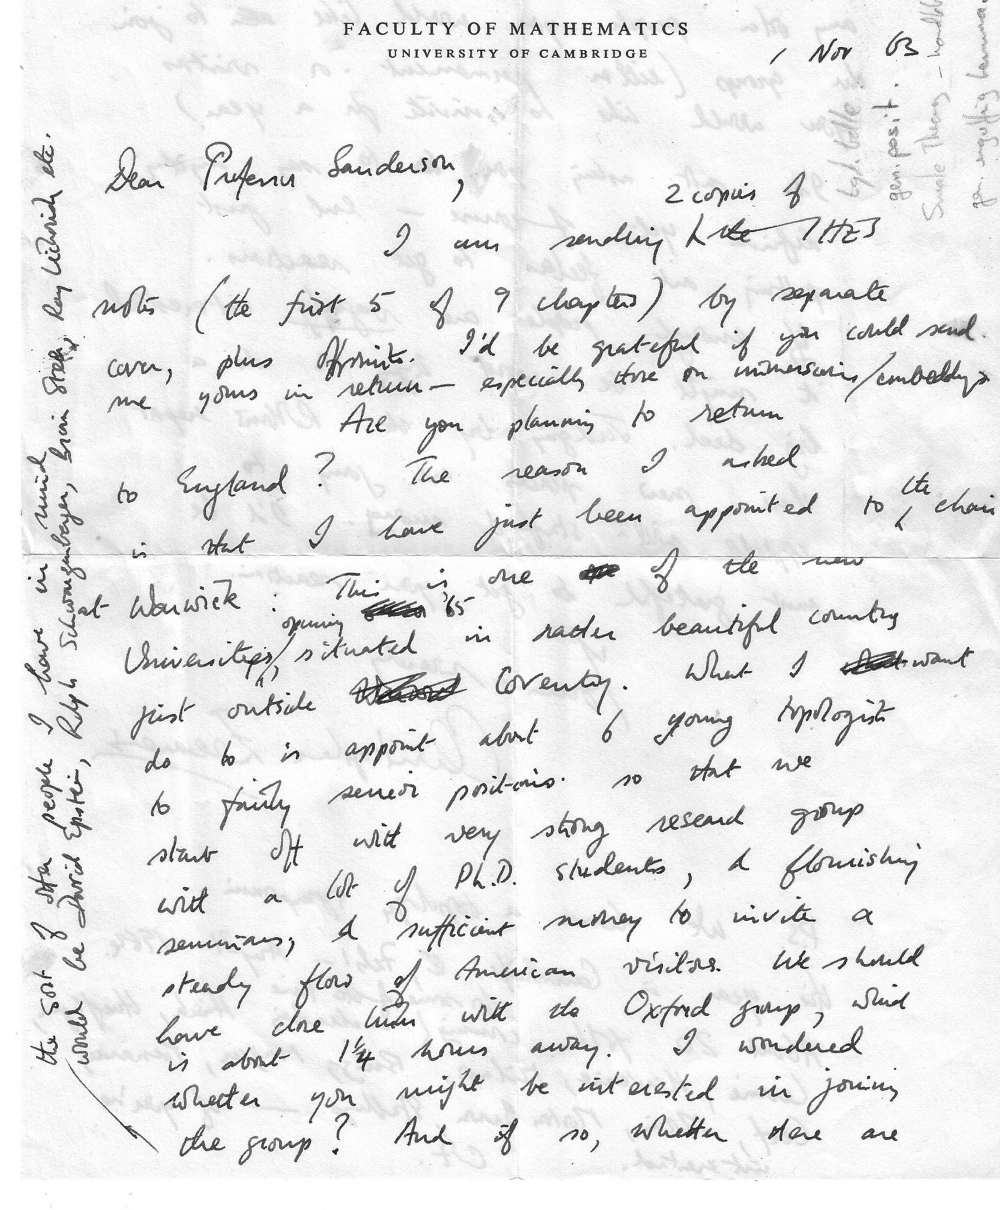 FACULTY OF MATHEMATICS
UNIVERSITY OF CAMBRIDGE
1 Nov 63
Dear Professor Sanderson,
2 copies of
I am sending the IHES
notes (the first 5 of 9 chapters) by separate
cover, plus offprints. I'd be grateful if you could send
me yours in return — especially those on immersions/embeddings
Are you planning to return
to England? The reason I asked
is that I have just been appointed to the chair
at Warwick: This is one of the new
Universities, opening '65 situated in rather beautiful country
just outside Coventry. What I want
do to is appoint about 6 young topologists
to fairly senior positions so that we
start off with very strong research group
with a lot of Ph.D. students, & flourishing
seminars, & sufficient money to invite a
steady flow of American visitors. We should
have close links with the Oxford group, which
is about 1¼ hours away. I wondered
whether you might be interested in joining
the group? And if so, whether there are
the sort of other people I have in mind
would be David Epstein, Ralph Schwarzenberger, Brian Steer, Ray Lickorish etc.
gen. posit.
Smale Theory - handle
gen. engulfing lemma.